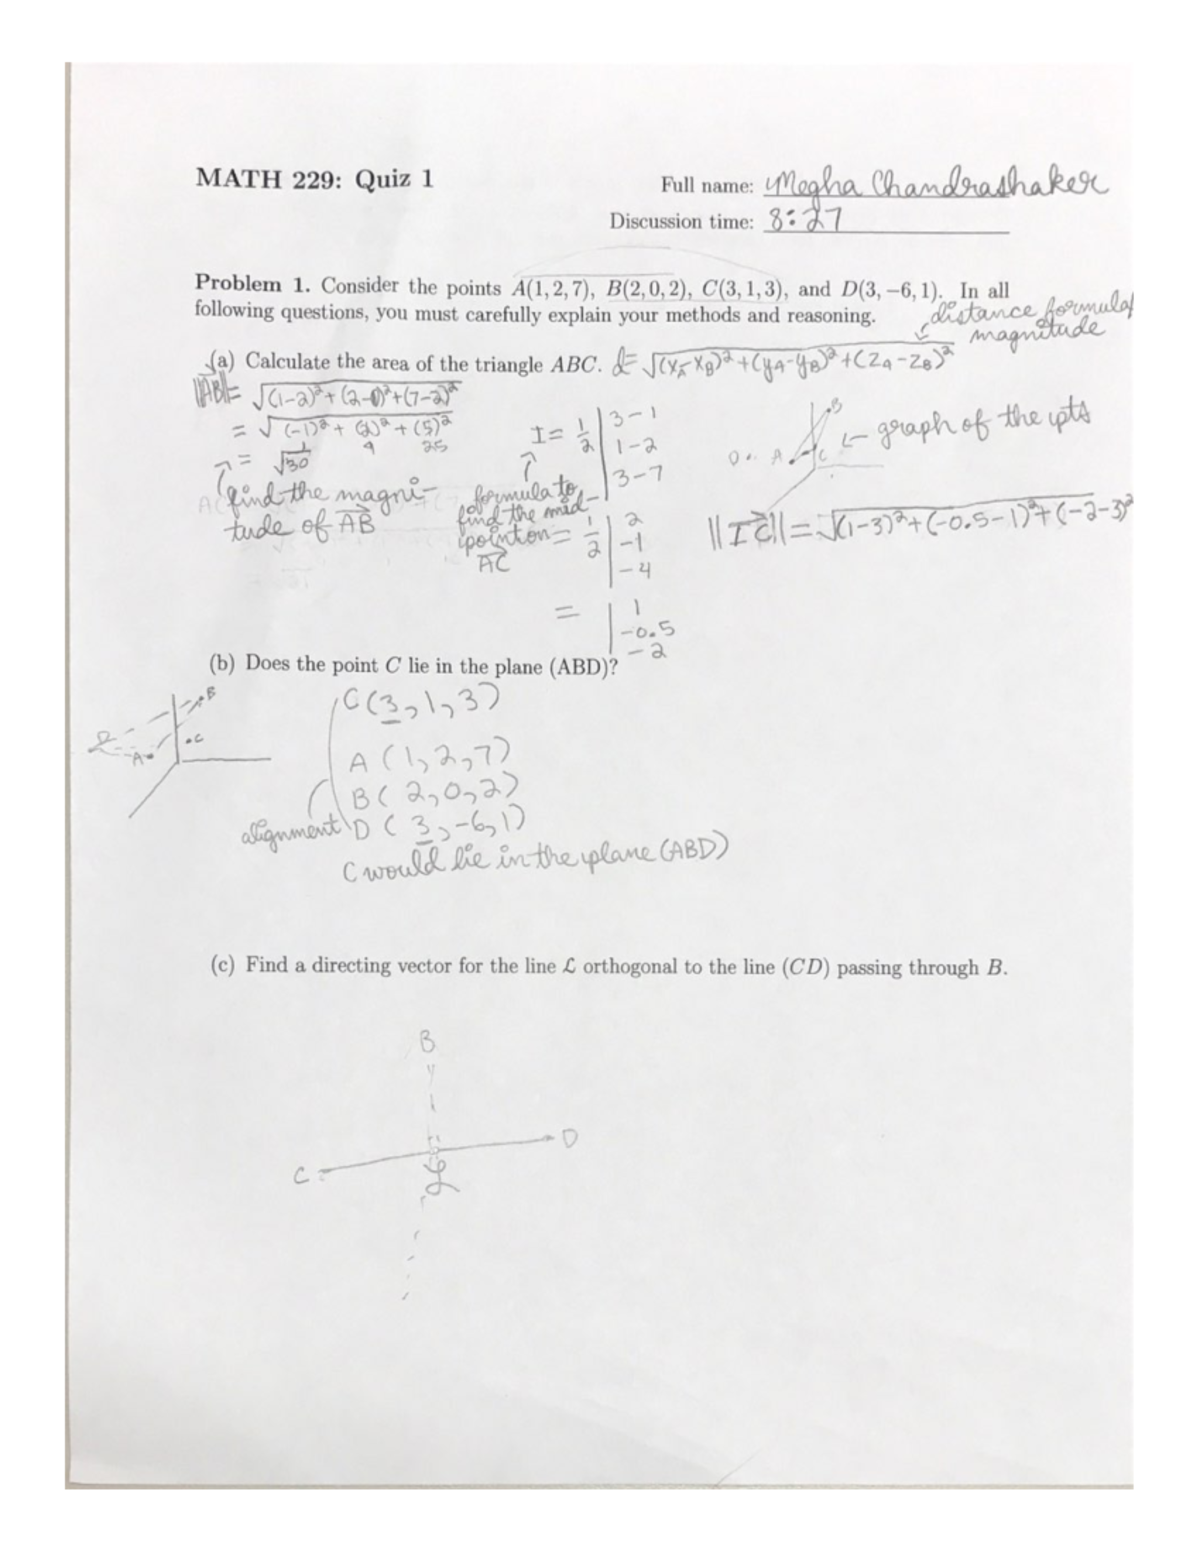 MATH 229: Quiz 1
Full name: Megha Chandrashaker
Discussion time: 8:27
Problem 1. Consider the points A(1, 2, 7), B(2, 0, 2), C(3, 1, 3), and D(3, −6, 1). In all
following questions, you must carefully explain your methods and reasoning.
distance formula/
magnitude
(a) Calculate the area of the triangle ABC. d= √(x_A-x_B)²+(y_A-y_B)²+(z_A-z_B)²
||AB||= √(1-2)²+(2-0)²+(7-2)²
= √(-1)²+(2)²+(5)²
1 4 25
= √30
find the magni-
tude of AB
I= 1/2 | 3-1
1-2
3-7
formula to
find the mid-
point on
AC
= 1/2 | 2
-1
-4
= | 1
-0.5
-2
B
D A C
← graph of the pts
||IC||= √(1-3)²+(-0.5-1)²+(-2-3)²
(b) Does the point C lie in the plane (ABD)?
B
D
C
A
C(3,1,3)
A(1,2,7)
B(2,0,2)
alignment D(3,-6,1)
C would lie in the plane (ABD)
(c) Find a directing vector for the line ℒ orthogonal to the line (CD) passing through B.
B
D
C
ℒ